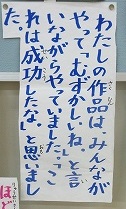 わたしの作品は、みんなが
やって、「むずかしいね。」と言
いながらやっていました。「こ
れは成功したな。」と思いまし
た。
せいこう
ほ